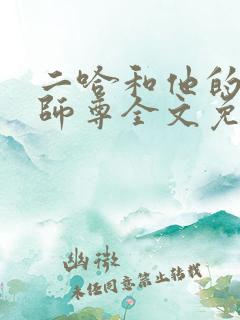 二哈和他的
師尊全文免
幽微
未经同意禁止转载